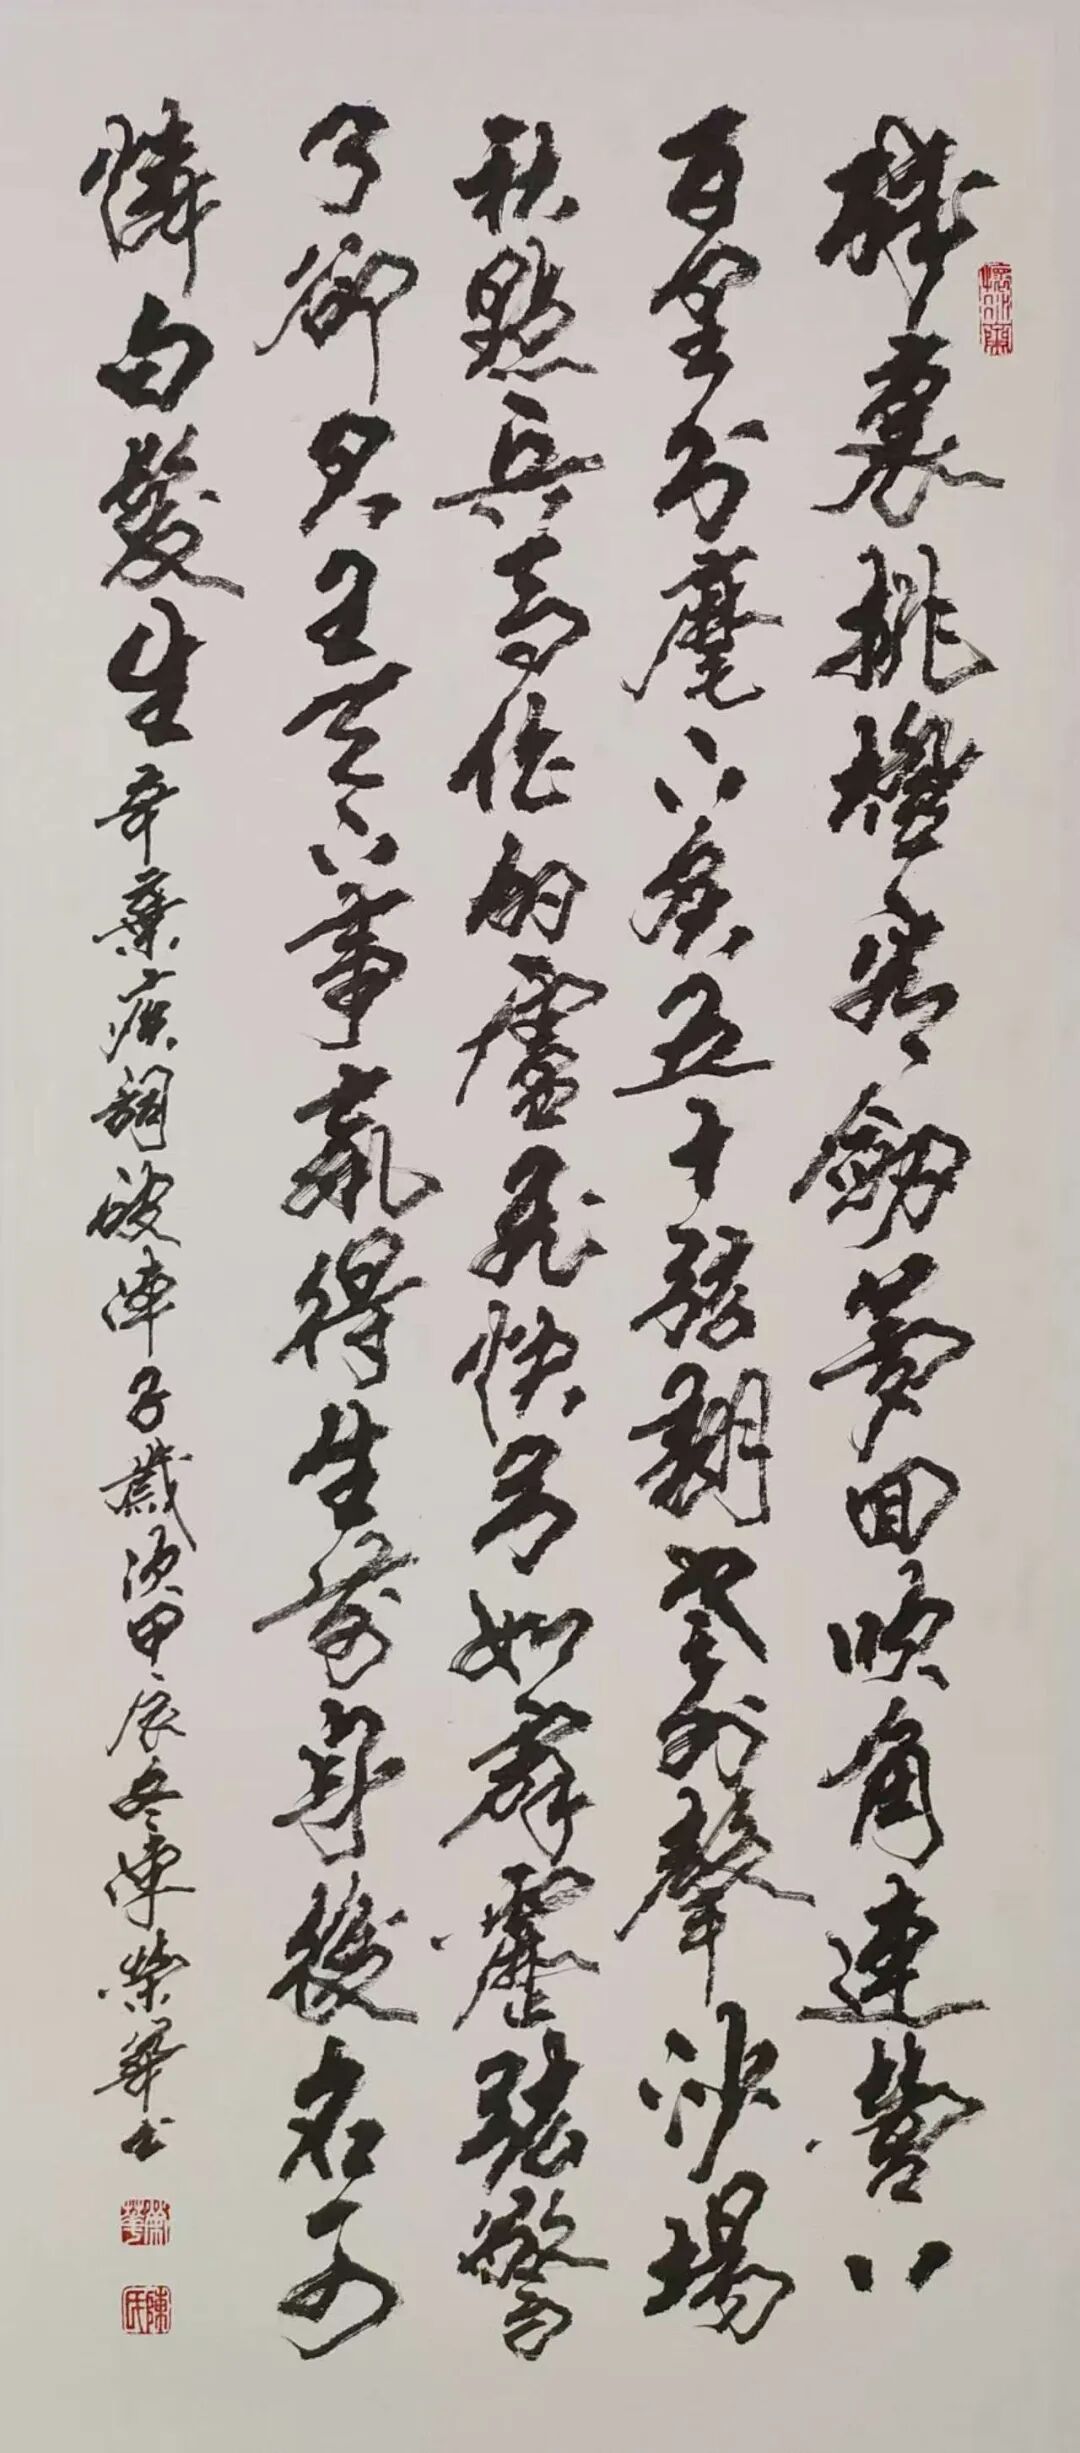 醉裏挑燈看劍夢回吹角連營八
百里分麾下炙五十弦翻塞外聲沙場
秋點兵馬作的盧飛快弓如霹靂弦驚
了卻君王天下事贏得生前身後名可
憐白髮生 辛棄疾詞破陣子歲次甲辰冬陳榮華書
榮華
陳氏